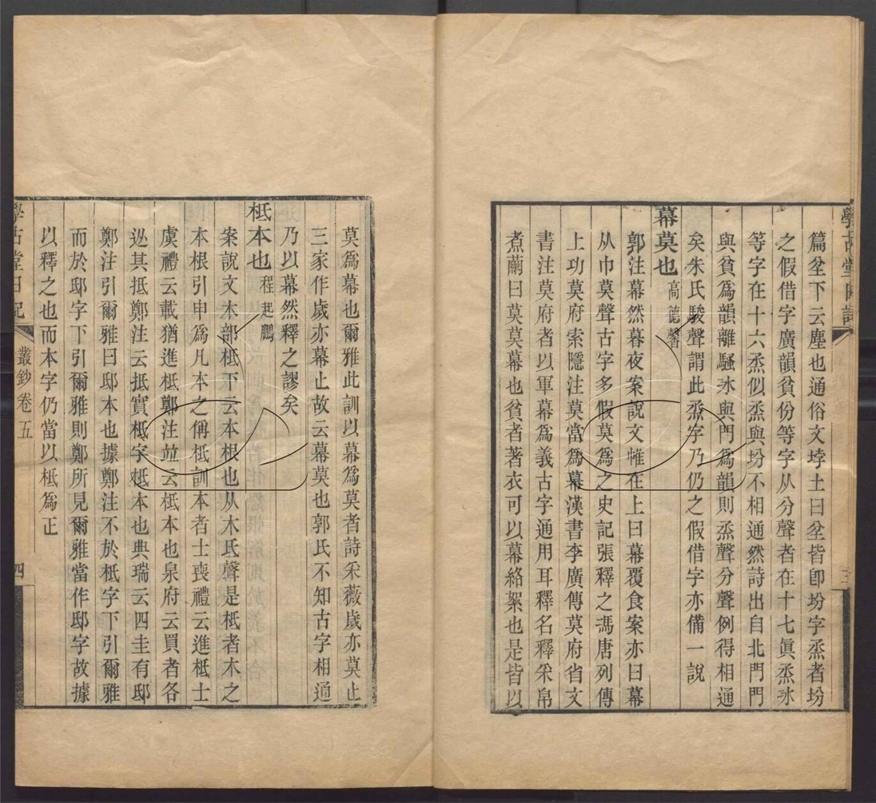 學古堂日記
三
篇坌下云塵也通俗文㘿土曰坌皆卽坋字烝者坋
之假借字廣韻貧份等字从分聲者在十七眞烝氶
等字在十六烝似烝與坋不相通然詩出自北門門
與貧為韻離騷氶與門為韻則烝聲分聲例得相通
矣朱氏駿聲謂此烝字乃仍之假借字亦備一說
幕莫也 高德馨
郭注幕然暮夜案說文帷在上曰幕覆食案亦曰幕
从巾莫聲古字多假莫為之史記張釋之馮唐列傳
上功莫府索隱注莫當為幕漢書李廣傳莫府省文
書注莫府者以軍幕為義古字通用耳釋名釋采帛
煮繭曰莫莫幕也貧者著衣可以幕絡絮也是皆以
莫為幕也爾雅此訓以幕為莫者詩采薇歲亦莫止
三家作歲亦幕止故云幕莫也郭氏不知古字相通
乃以幕然釋之謬矣
柢本也 程起鵬
案說文木部柢下云木根也从木氐聲是柢者木之
本根引申為凡本之偁柢訓本者士喪禮云進柢士
虞禮云載猶進柢鄭注竝云柢本也泉府云買者各
從其抵鄭注云抵實柢字柢本也典瑞云四圭有邸
鄭注引爾雅曰邸本也據鄭注不於柢字下引爾雅
而於邸字下引爾雅則鄭所見爾雅當作邸字故據
以釋之也而本字仍當以柢為正
學古堂日記
叢鈔卷五
四